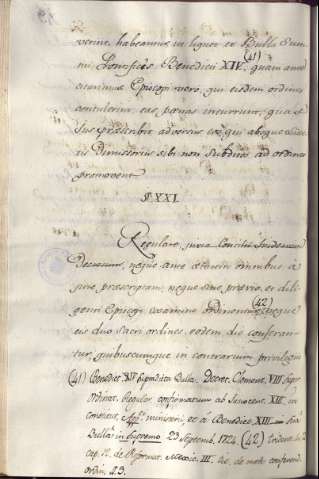 verint, habeamus ut liquet ex Bulla Sum-
mi Pontificis Benedicti XIV. (41) quam ante
citavimus Episcopi vero, qui eisdem ordines
contulerint, eas poenas incurrunt, quas
jus præscribit adversus eos, qui absque
Dimissoriis sibi non subditos ad ordines
promovent.
§ XXI.
Regulares, juxta Concilii Tridentini
Decretum, neque ante ætatem omnibus a
jure præscriptam, neque sine prævio, et dili-
genti Episcopi examine ordinentur, (42) neque
eis duo sacri ordines, eodem die conferan-
tur, quibuscumque in contrarium privilegiis
(41) Benedict. XIV Bulla. Decret. Clement. VIII super
Ordinat. Regular confirmatum ab Innocent. XII. in
Const. et a Benedicto XIII in sua
Bulla in supremo 23 Septemb. 1724. (42) Trident.
cap. 12. de Reformat. Memin. III. tit. de not. conferend.
ordin. 13.